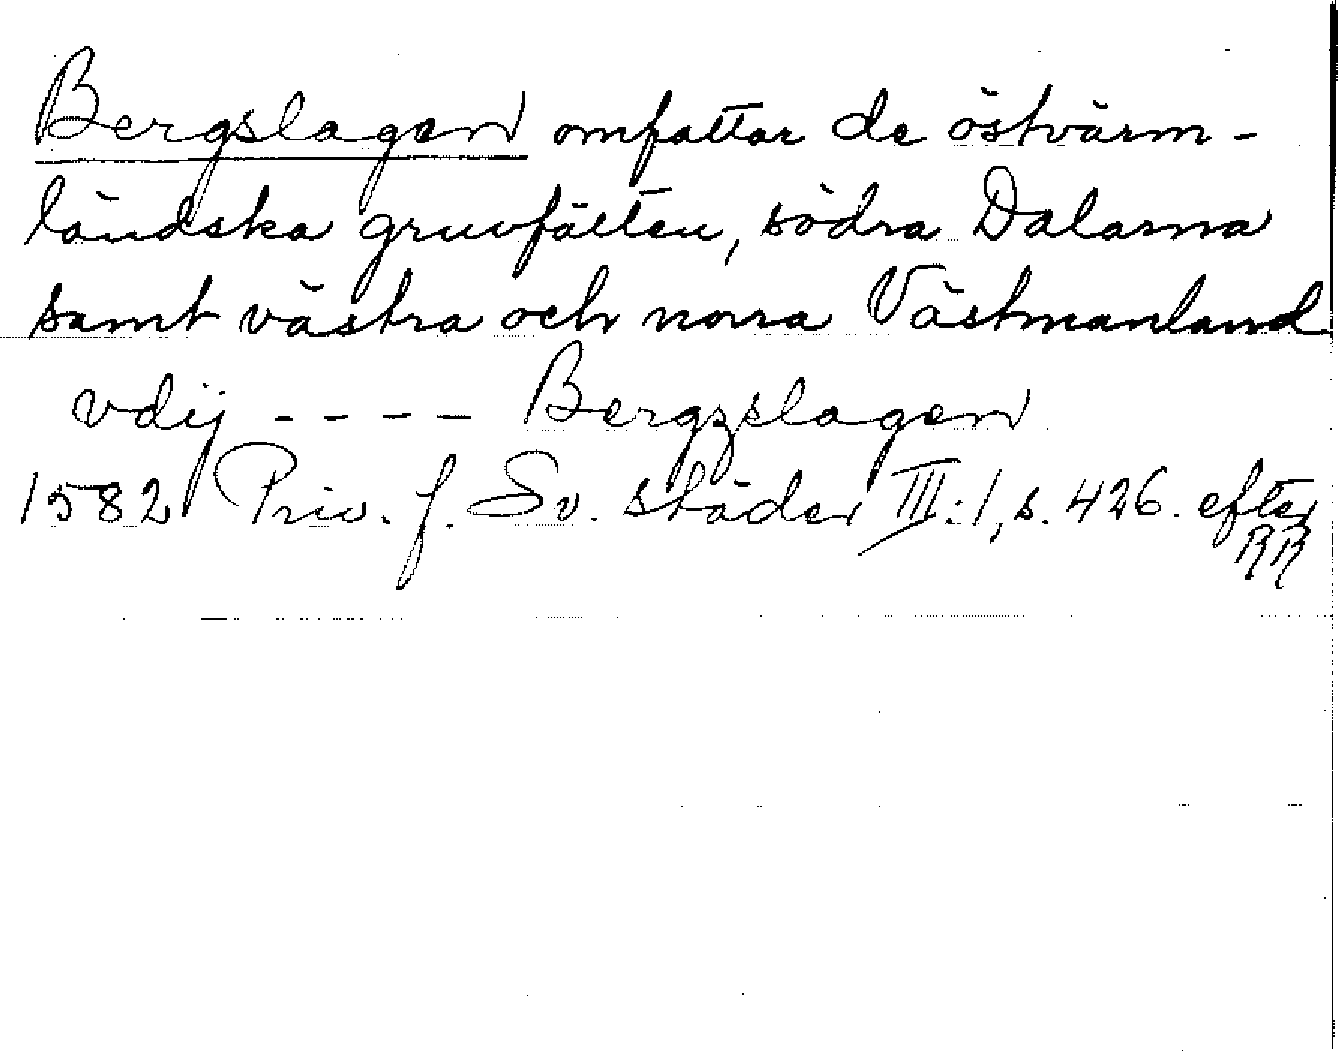 Bergslagen omfattar de östvärm-
ländska gruvfälten, södra Dalarna
samt västra och norra Västmanland
vdij - - - - Bergzslagen
1582 Priv. f. Sv. städer III:1, s. 426. efter
RR